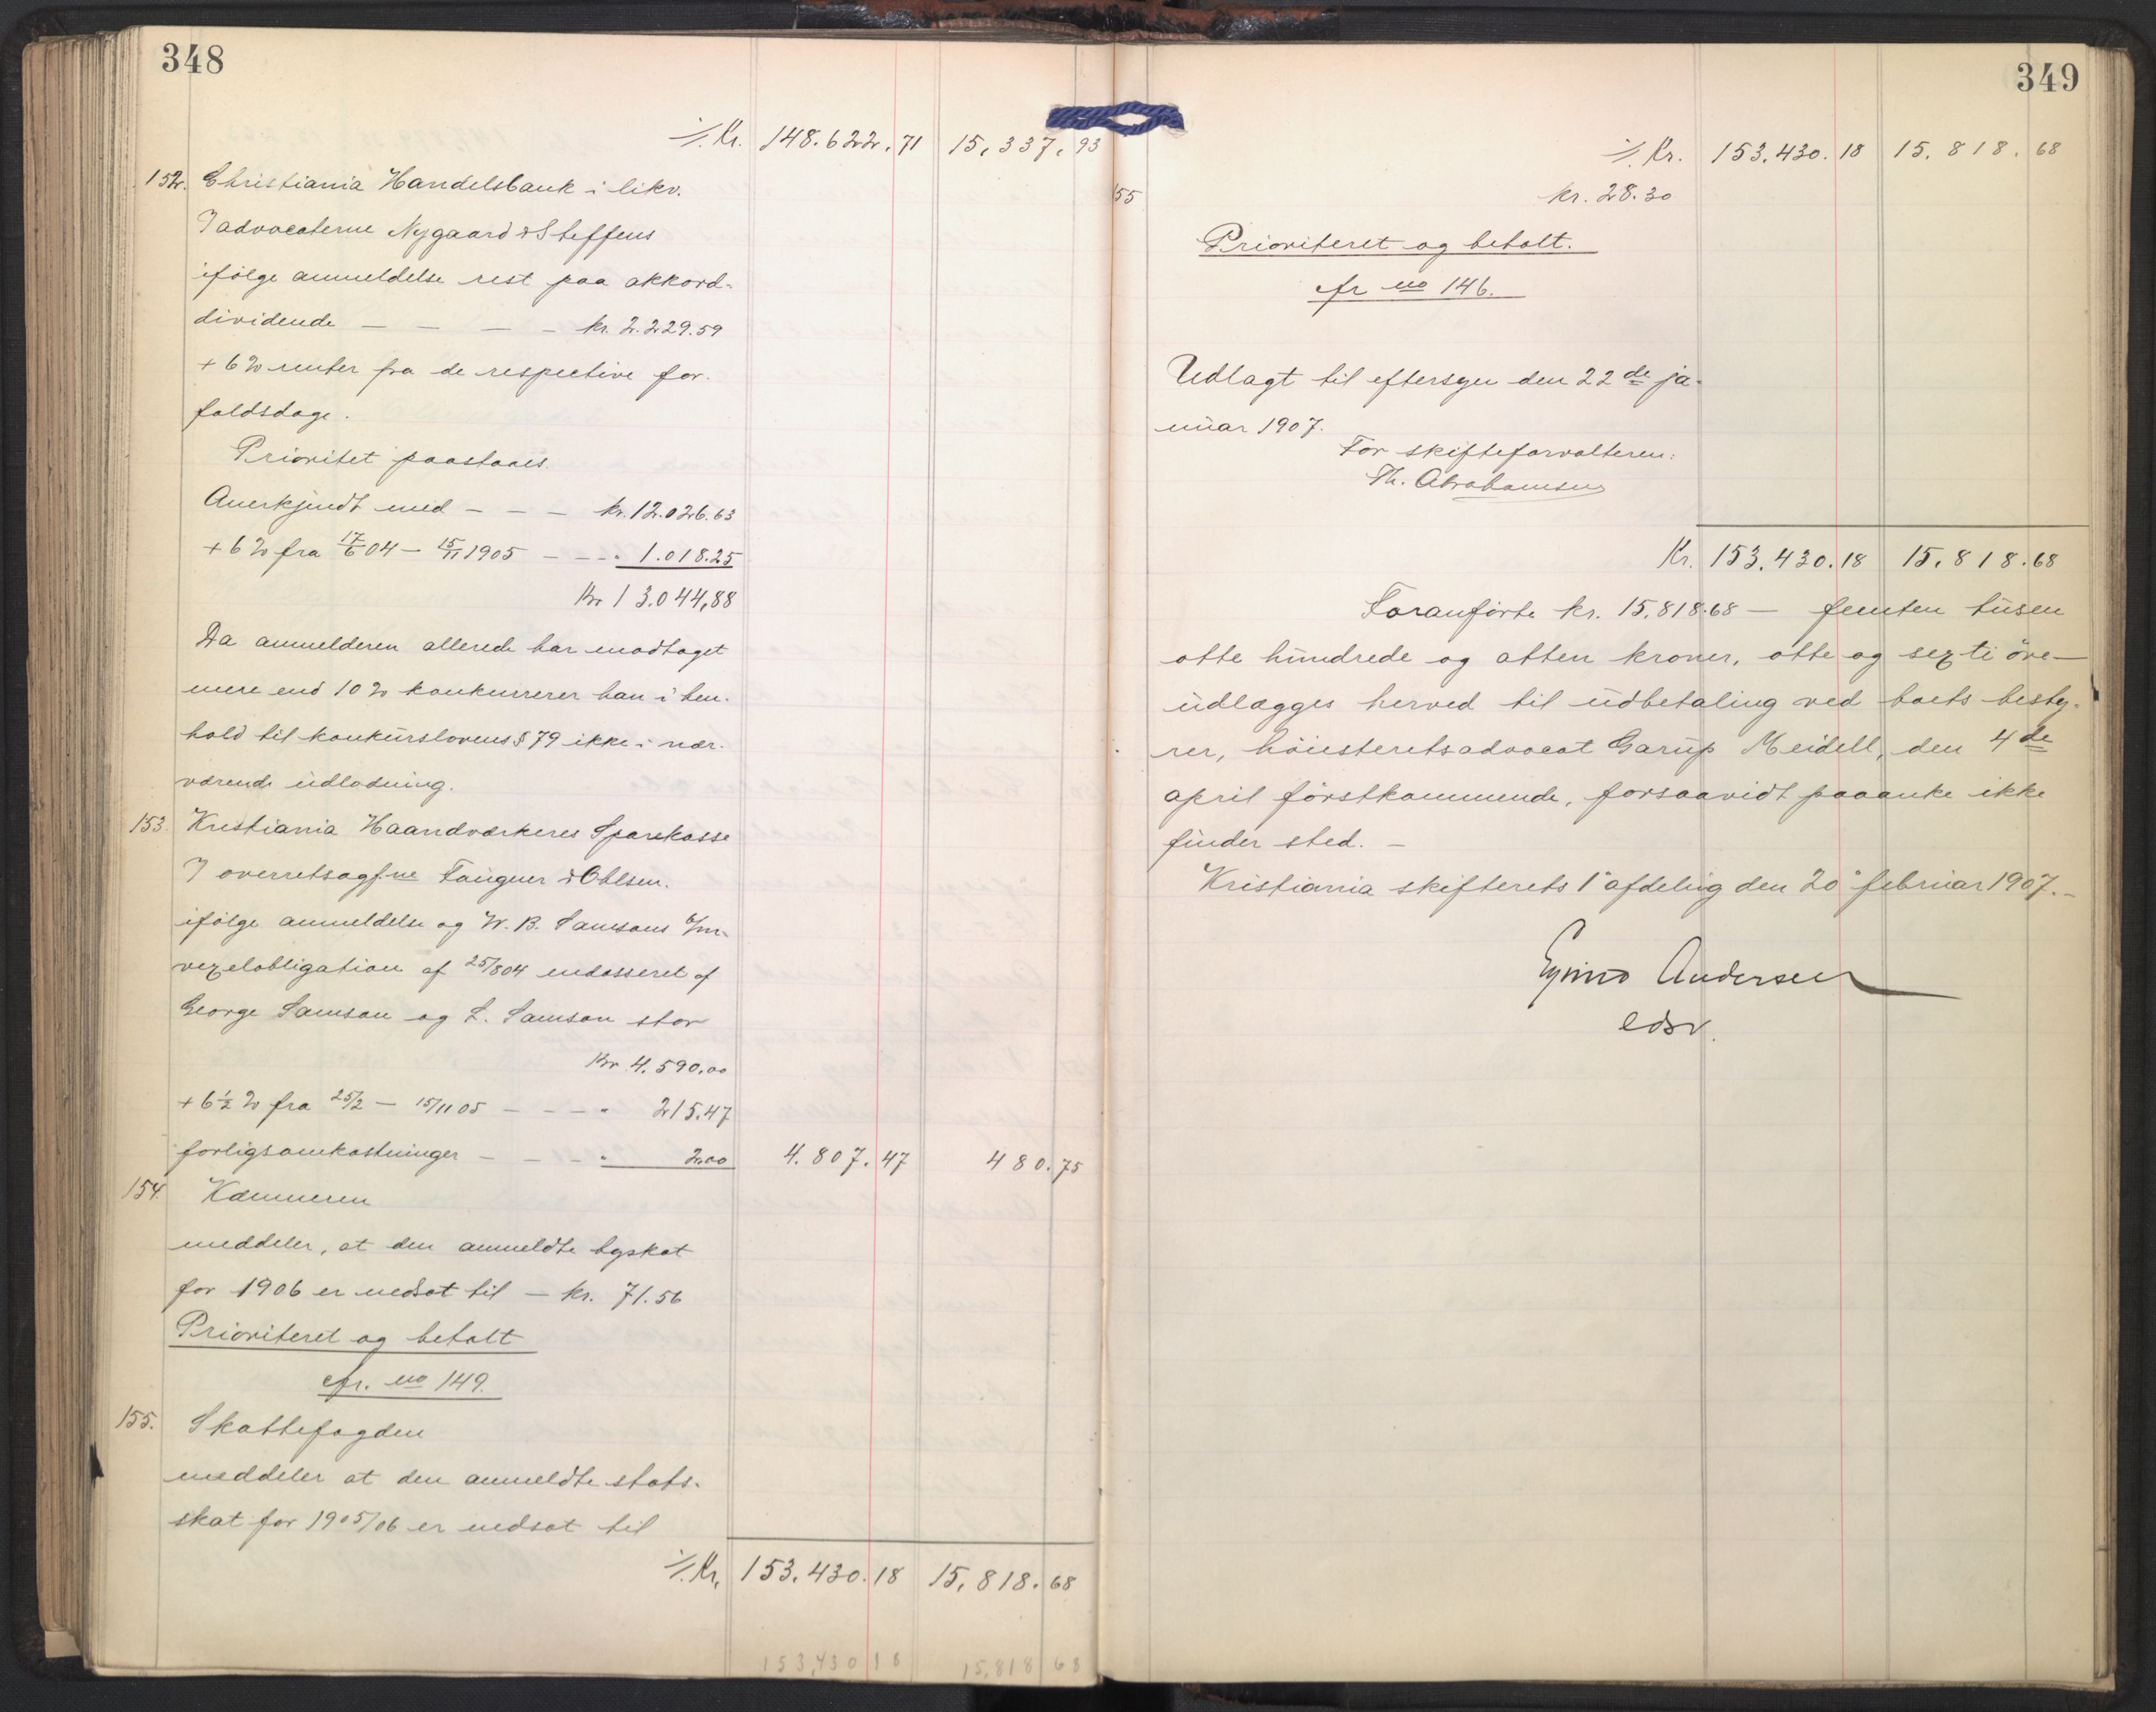 348
÷ Kr. 148.622.71 15,337,93
152. Christiania Handelsbank i likv.
I advocaterne Nygaard & Steffens
ifölge anmeldelse rest paa akkord-
dividende — — — — kr. 2.229.59
+ 6 % renter fra de respective for-
faldsdage.
Prioritet paastaaes.
Anerkjendt med — — — kr. 12.026.63
+ 6 % fra 17/6 04 — 15/11 1905 — — - " 1.018.25
Kr 13.044,88
Da anmelderen allerede har modtaget
mere end 10 % konkurrerer han i hen-
hold til konkurslovens § 79 ikke i nær-
værende udlodning.
153. Kristiania Haandværkeres Sparekasse
I overretssagf.ne Faugner & Ohlsen.
ifölge anmeldelse og W. B. Samsons
vexelobligation af 25/8 04 endosseret af
George Samson og L. Samson stor
Kr 4.590.00
+ 6 ½ % fra 25/2 — 15/11 05 — — — " 215.47
forligsomkostninger — — — " 2.00 4.807.47 480.75
154. Kæmneren
meddeler, at den anmeldte byskat
for 1906 er nedsat til — kr. 71.56
Prioriteret og betalt
cfr. no 149.
155. Skattefogden
meddeler at den anmeldte stats-
skat for 1905/06 er nedsat til
÷ Kr. 153.430.18 15,818.68
153,430 18 15,818 68
349
÷ Kr. 153.430.18 15.818.68
155 kr. 28.30
Prioriteret og betalt.
cfr no 146.
Udlagt til eftersyn den 22de ja-
nuar 1907.
For skifteforvalteren:
Th. Abrahamsen
Kr. 153.430.18 15.818.68
Foranförte kr. 15.818.68 — femten tusen
otte hundrede og atten kroner, otte og sexti öre —
udlægges herved til udbetaling ved boets besty-
rer, höiesteretsadvocat Garup Meidell, den 4de
april förstkommende, forsaavidt paaanke ikke
finder sted. —
Kristiania skifterets 1" afdeling den 20" februar 1907. —
Eyvind Andersen
edsv.